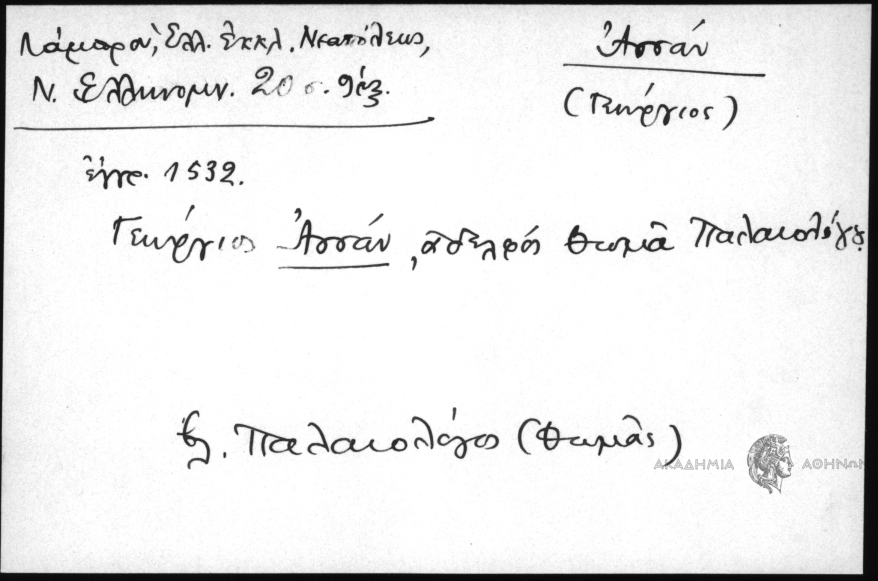 Λάμπρου, Ἑλλ. ἐκκλ. Νεαπόλεως,
Ν. Ἑλληνομν. 20 σ.
Ἀσσάν
(Γεώργιος)
ἔγγρ. 1532.
Γεώργιος Ἀσσάν, ἀδελφός Θωμᾶ Παλαιολόγου
βλ. Παλαιολόγος (Θωμᾶς)
ΑΚΑΔΗΜΙΑ ΑΘΗΝΩΝ